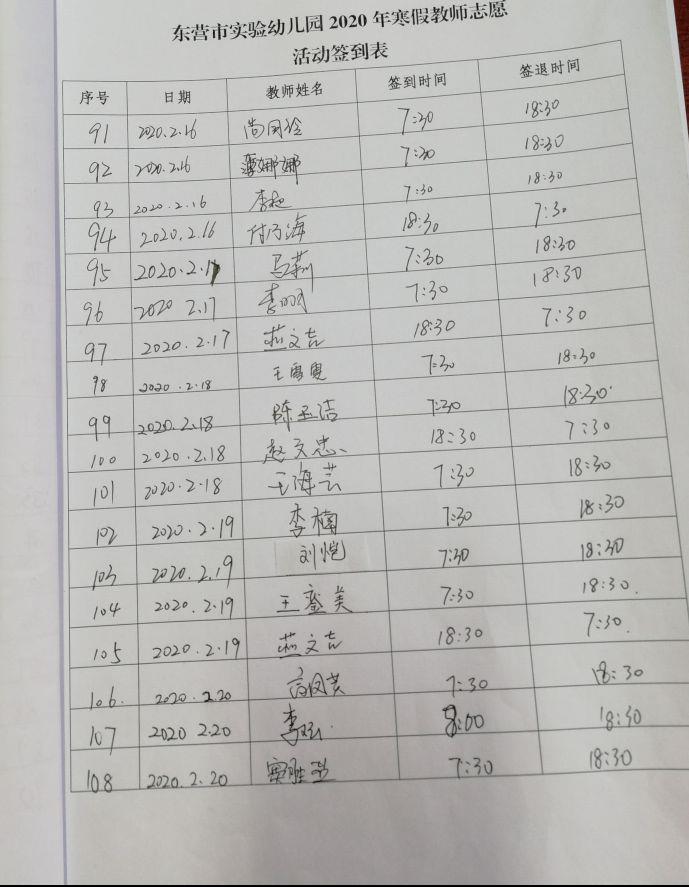 东营市实验幼儿园 2020 年寒假教师志愿
活动签到表
序号 日期 教师姓名 签到时间 签退时间
91 2020.2.16 尚同珍 7:30 18:30
92 2020.2.16 娜娜 7:30 18:30
93 2020.2.16 李艳 7:30 18:30
94 2020.2.16 付乃海 18:30 7:30
95 2020.2.17 马莉 7:30 18:30
96 2020 2.17 李明 7:30 18:30
97 2020.2.17 燕文吉 18:30 7:30
98 2020.2.18 王雪 7:30 18:30
99 2020.2.18 陈玉洁 7:30 18:30
100 2020.2.18 赵文忠 18:30 7:30
101 2020.2.18 王海芸 7:30 18:30
102 2020.2.19 李楠 7:30 18:30
103 2020.2.19 刘恺 7:30 18:30
104 2020.2.19 王美 7:30 18:30
105 2020.2.19 燕文吉 18:30 7:30
106. 2020.2.20 7:30 18:30
107 2020 2.20 李 8:00 18:30
108 2020.2.20 窦胜 7:30 18:30